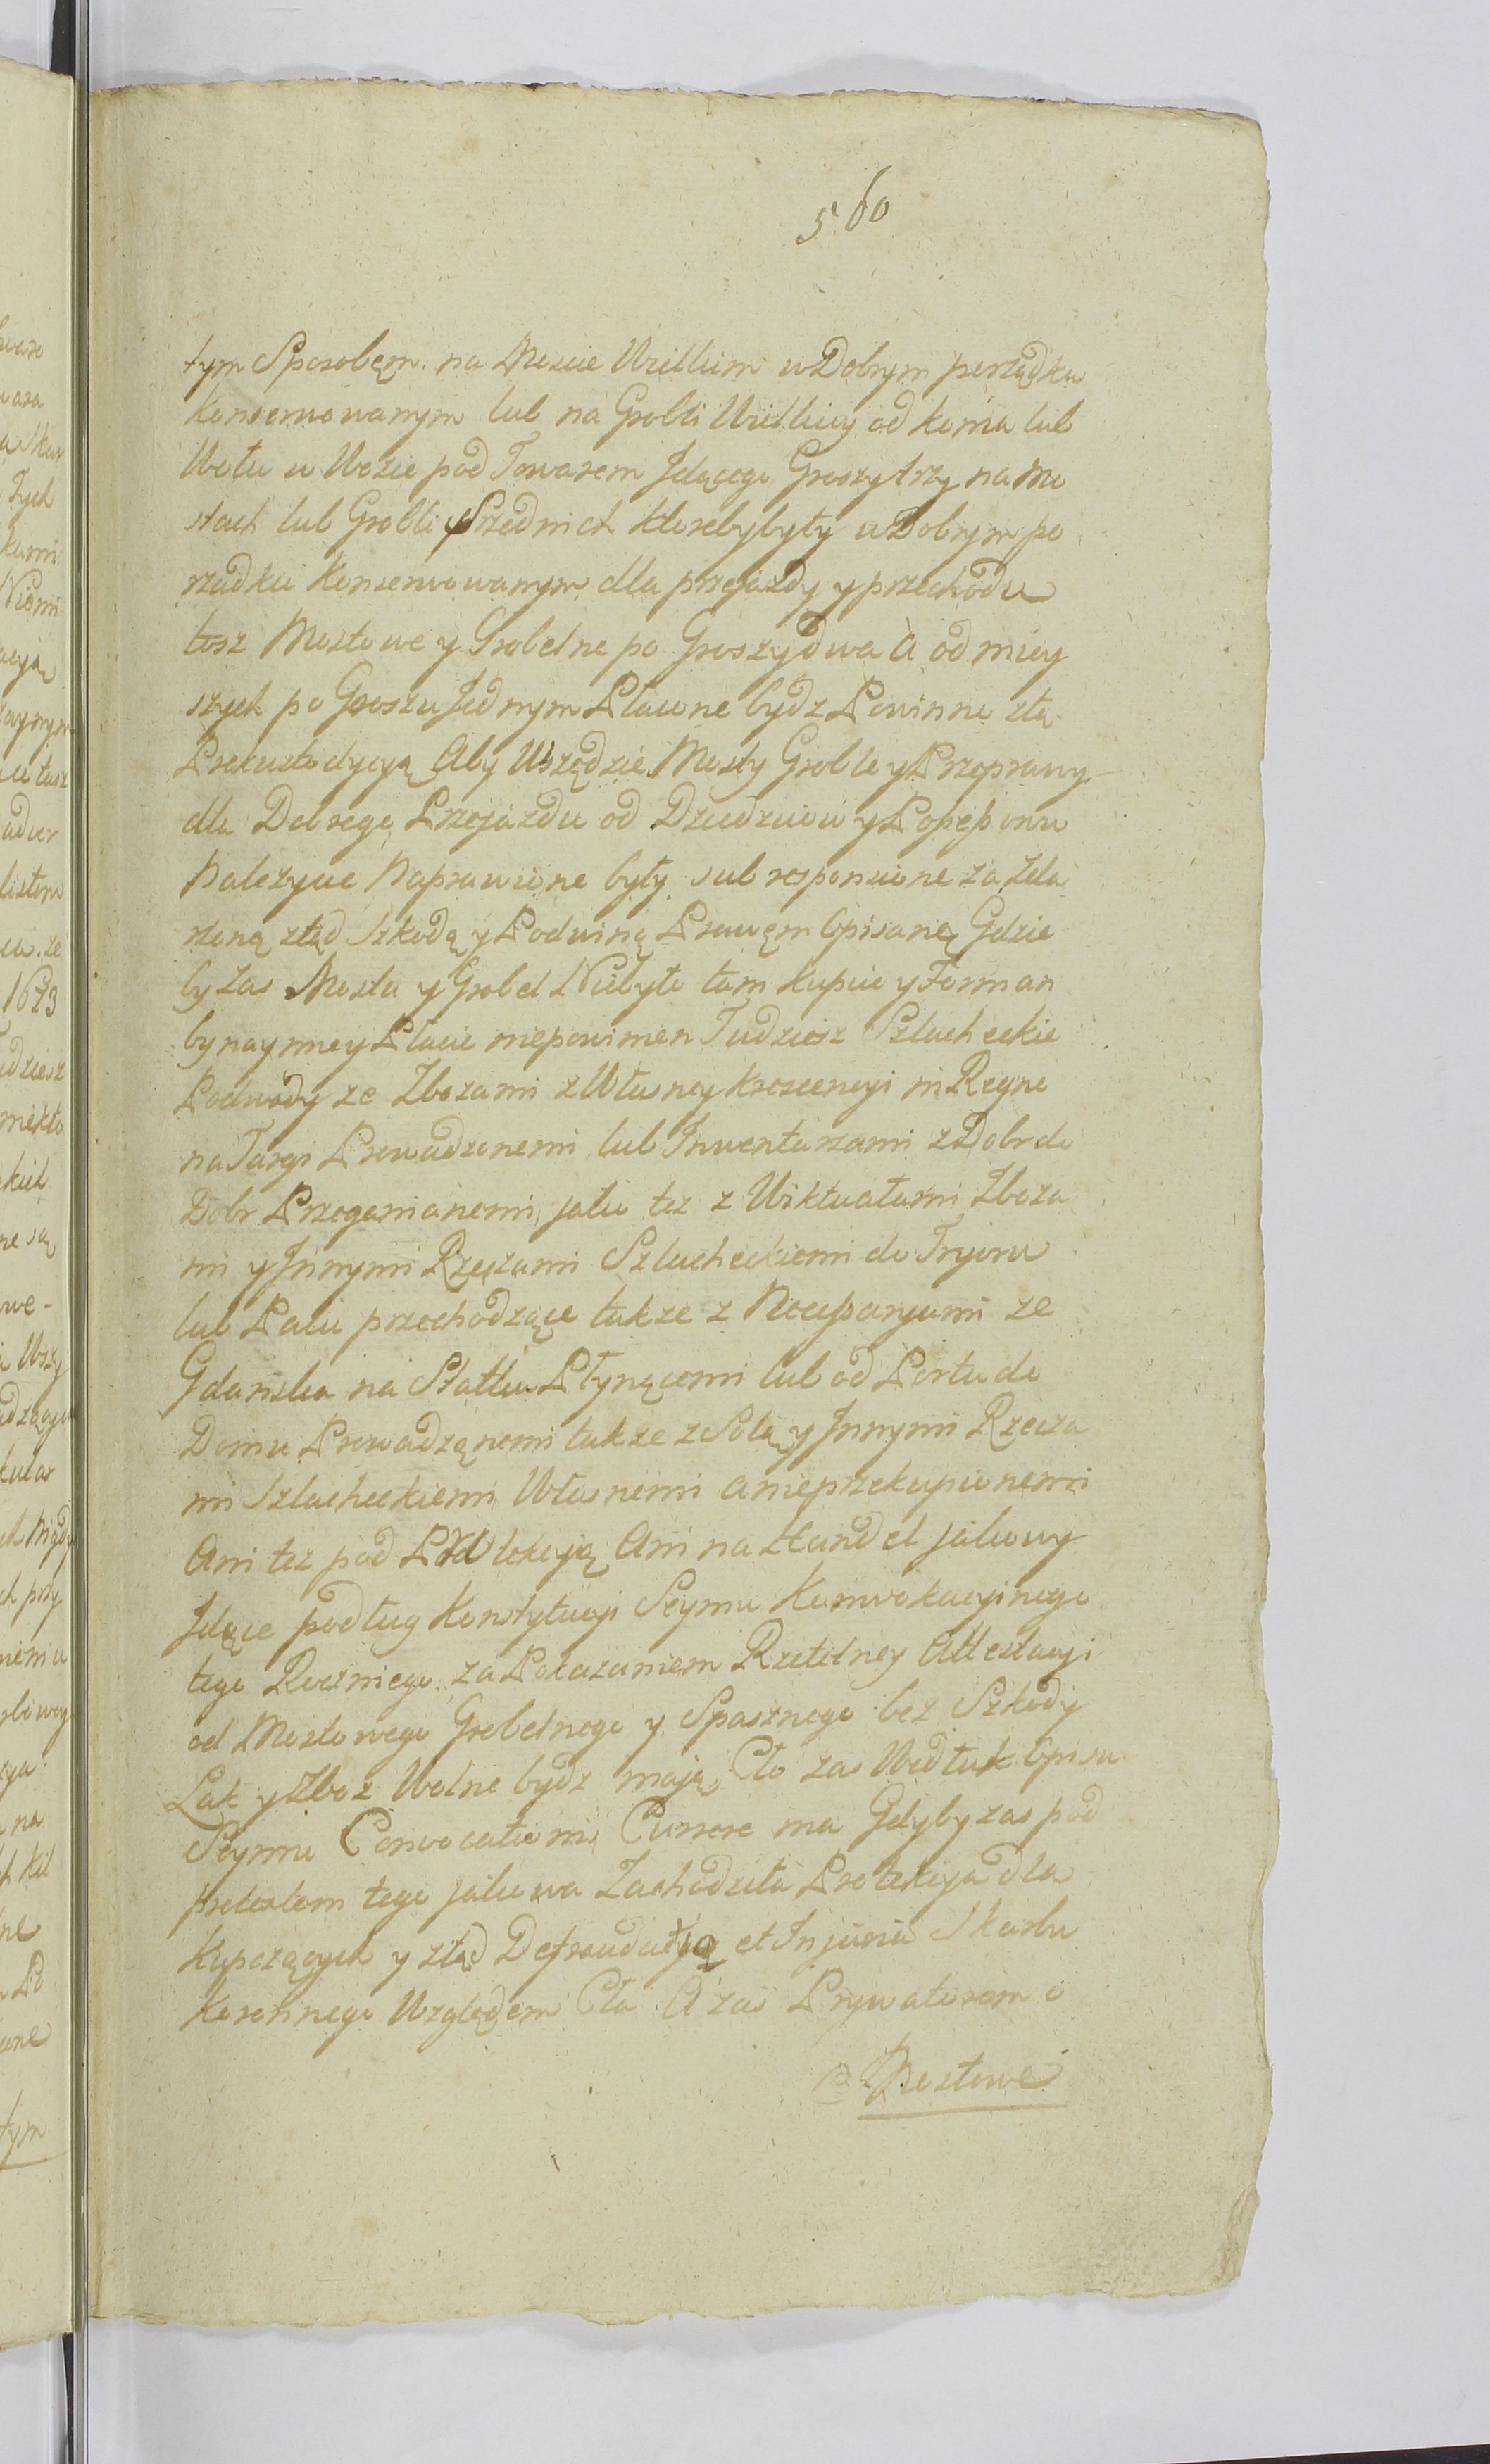 560
tym Sposobęm na Moscie Wielkim w Dobrym porządku
Konserwowanym lub na Grobli Wielkiey od konia lub
Wołu w Wozie pod Towarem Idącego Groszy trzy na Mo
stach lub Grobli Srzednich ktorebybyły w Dobrym po
rządku Konserwowanym dla przejazdy y przechodu
tosz Mostowe y Grobelne po Groszy dwa à od mniey
szych po Groszu Jednym Płacone bydz Powinno ztą
Prekustodycyą Aby Wszędzie Mosty Groble y Przeprawy
dla Dobrego Przejazdu od Dziedzicow y Possessorow
Należycie Naprawione były sub responsione za Zda
rzoną ztąd Szkodą y Podwiną Prawęm Opisaną Gdzie
by zas Mostu y Grobel Niebyło tam kupiec y Forman
bynaymniey Płacic niepowinien Tudziesz Szlacheckie
Podwody ze Zbozami z Własney krescencyi in Regno
na Targi Prowadzonemi lub Inwentarzami z Dobr do
Dobr Przeganianemi, jako tez z Wiktuałami Zboza
mi y Innymi Rzeczami Szlacheckiemi do Tryoru
lub Palu przechodzące takze z
Gdanska na Statku Płynącemi lub od Portu do
Domu Prowadzonemi takze z Solą y Innymi Rzecza
mi Szlacheckiemi Własnemi a nieprzekupionemi
Ani tez pod Protekcyą Ani na Handel jakowy
Idące podług Konstytucyi Seymu Konwokacyinego
tego Rocznego za Pokazaniem Rzetelney Attestacyi
od Mostowego Grobelnego y Spasznego bez Szkody
Łąk y Zboz Wolne bydz mają Cło zas Wedłuk Opisu
Seymu Convocationis Currere ma Gdyby zas pod
pretextem tego jakowa Zachodziła Protekcya dla
Kupczących y ztąd Defraudacyą et Injuria Skarbu
Koronnego Względem Cła A zas Prywatorom o
Mostowe